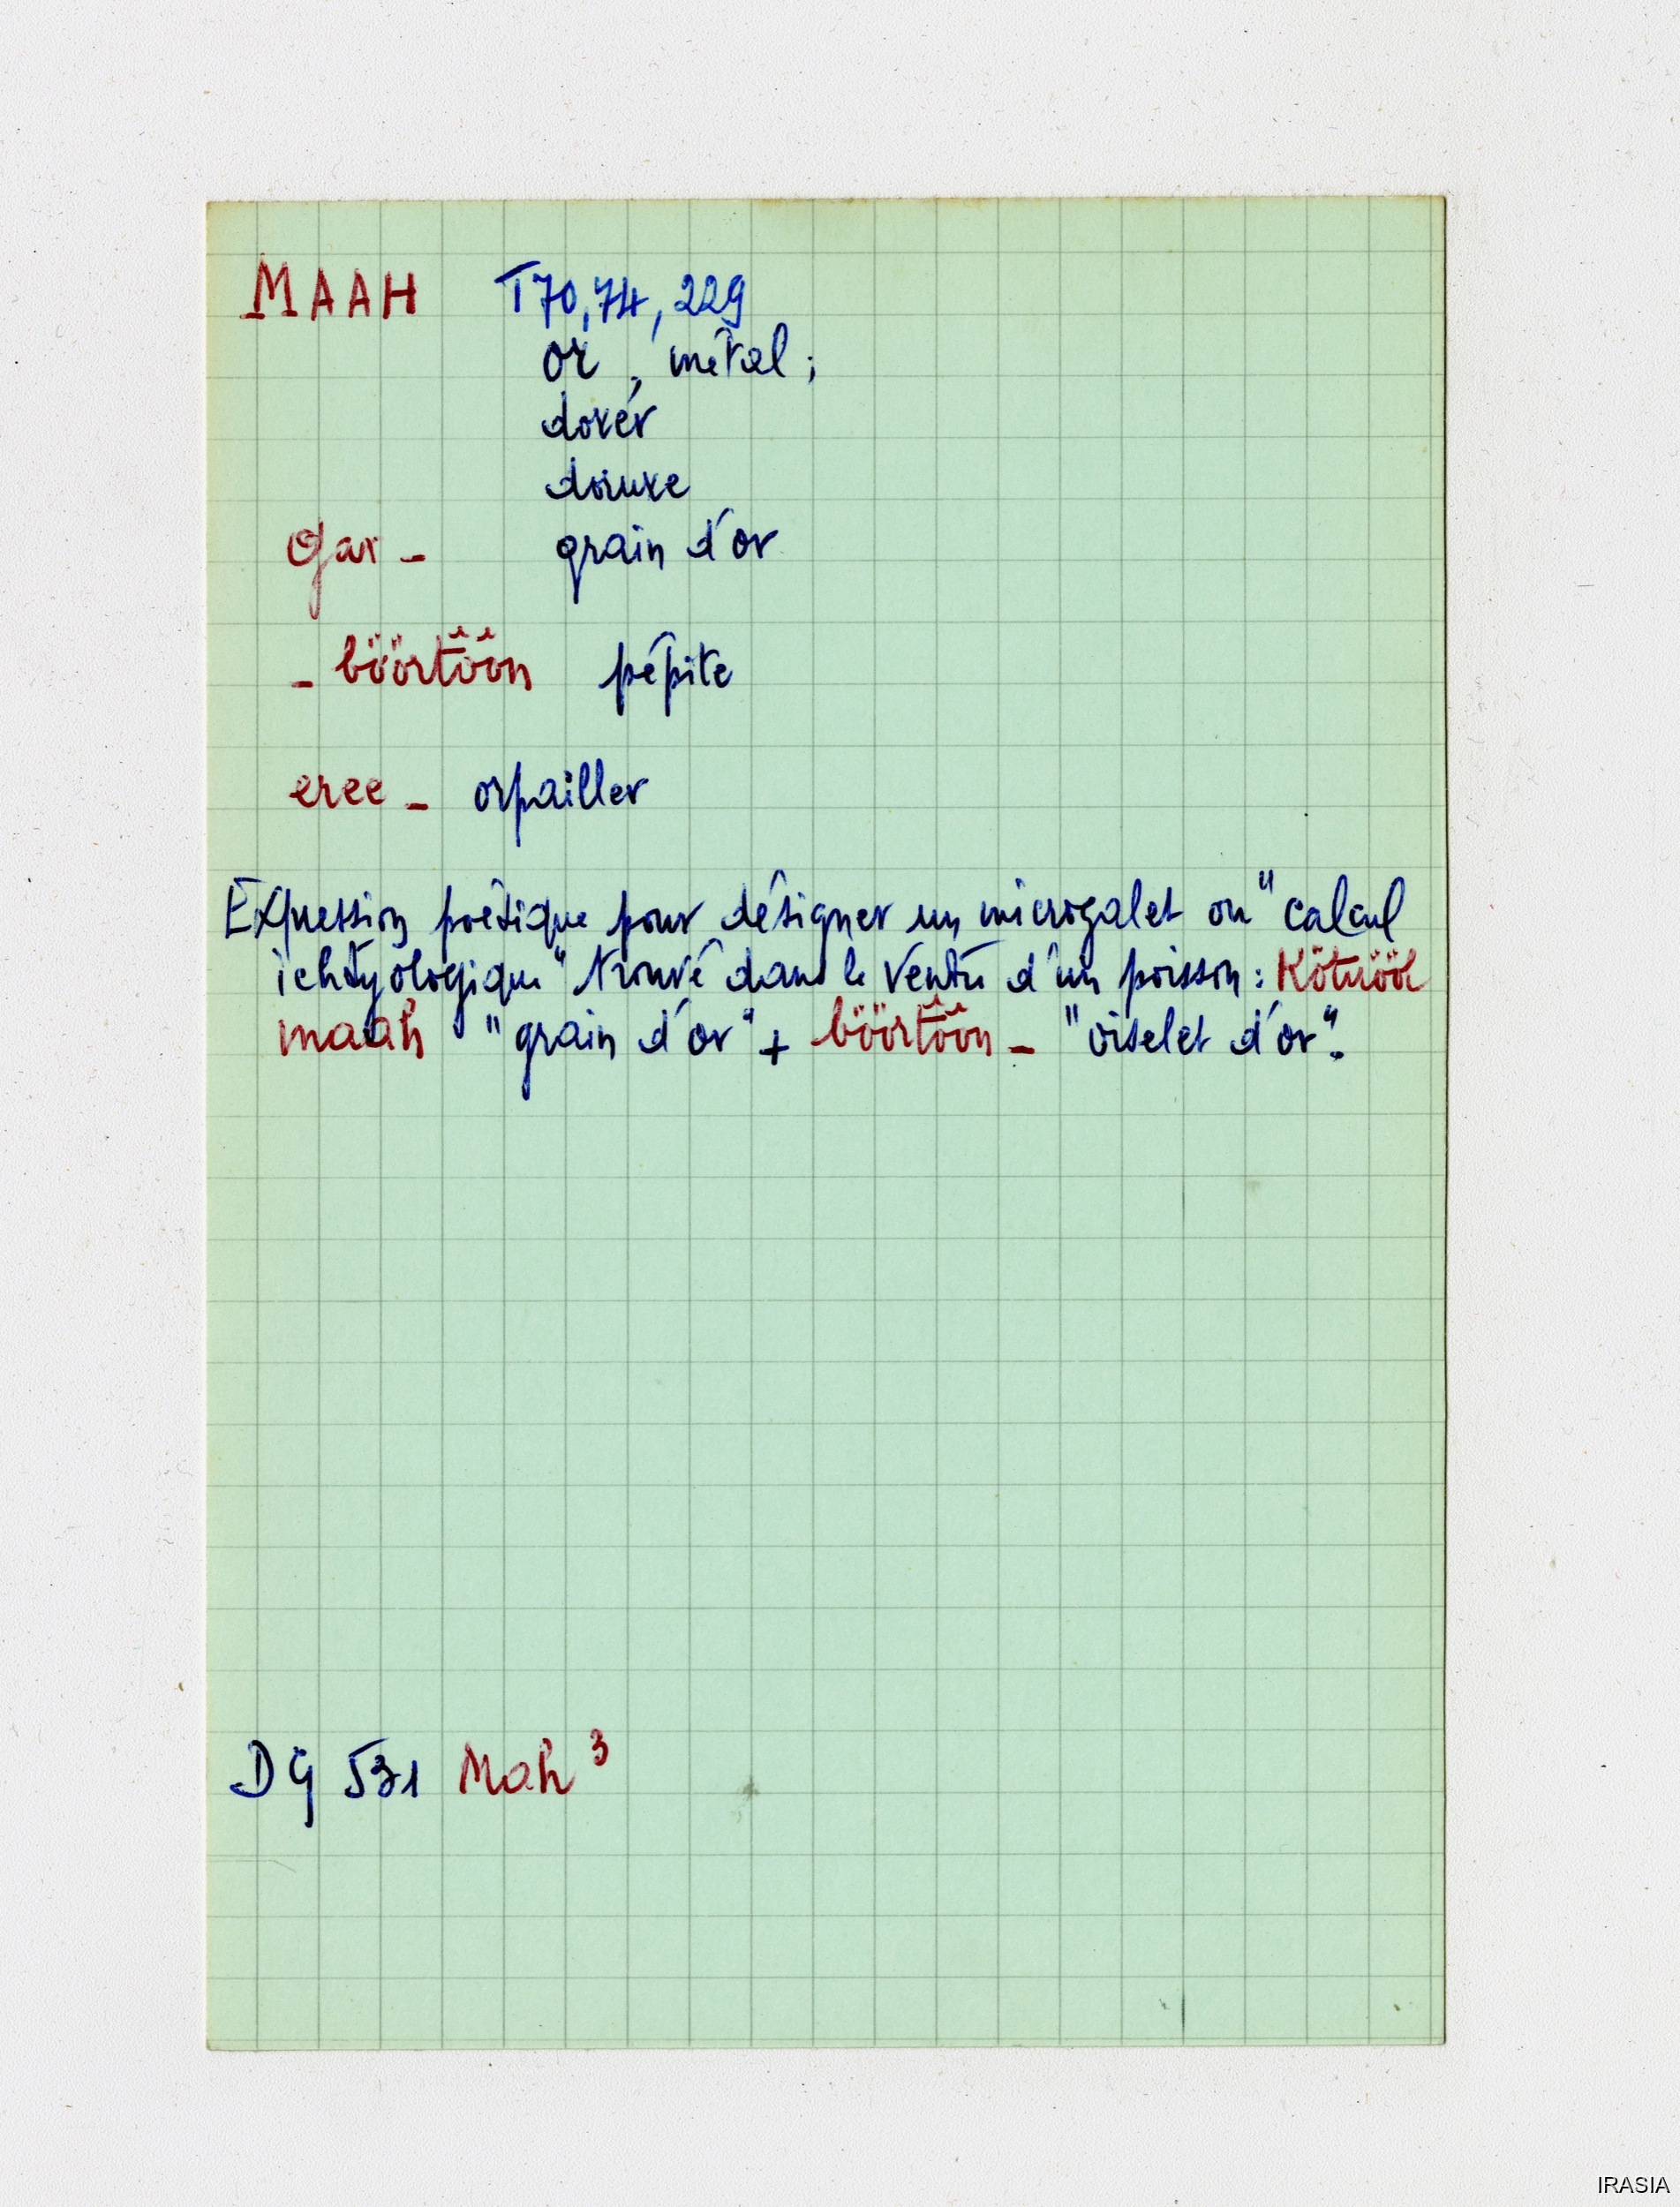 MAAH T70,74,229
or, métal;
dorer
dorure
gar - grain d'or
- böörtöön pépite
eree - orpailler
Expression poétique pour désigner un microgalet ou "calcul
ichtyologique" trouvé dans le ventre d'un poisson:
maah "grain d'or" + böörtöön - "oiselet d'or".
DG 531 Mah³
IRASIA